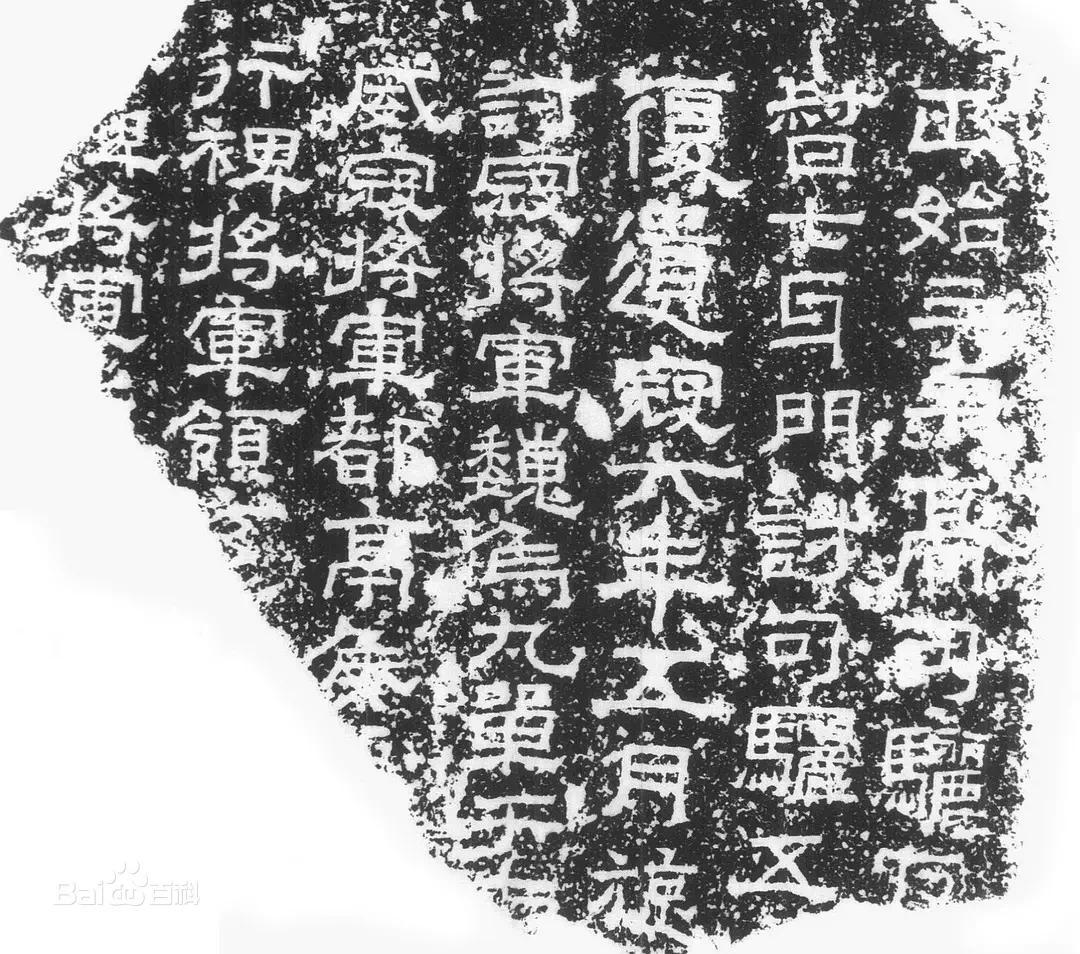 正始三年高句驪
督七牙門討句驪五
復遺寇六年五月旋
討寇將軍巍烏丸單于
威寇將軍都亭侯
行裨將軍領
裨將軍
Bai百科